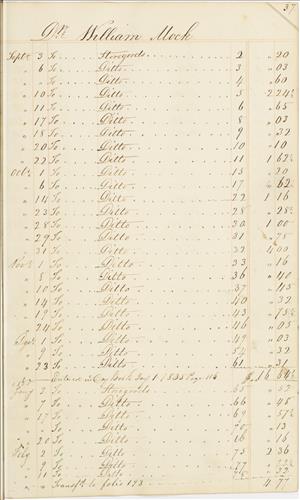 37
Dr. William Mock
Sept 3 To Storegoods 2 " 20
" 6 To Ditto 3 " 03
" " To Ditto 4 " 60
" 10 To Ditto 5 2 24¾
" 11 To Ditto 6 " 65
" 17 To Ditto 8 " 03
" 18 To Ditto 9 " 32
" 20 To Ditto 10 " 10
" 22 To Ditto 11 1 62½
Oct 1 To Ditto 15 " 20
" 6 To Ditto 17 " 62
" 14 To Ditto 22 1 16
" 23 To Ditto 28 " 28
" 28 To Ditto 30 1 00
" 29 To Ditto 31 " 75
" 31 To Ditto 32 4 00
Nov 1 To Ditto 33 " 16
" 8 To Ditto 36 " 40
" 10 To Ditto 37 " 45
" 14 To Ditto 40 " 32
" 19 To Ditto 43 " 75½
" 24 To Ditto 46 " 05
" To Ditto 49 " 03
" 9 To Ditto 54 " 32
" 23 To Ditto 61
Day Book 1835 Page
To Storegoods 65
" To Ditto 66 " 45
" To Ditto 69 " 57½
" To Ditto " 13
" 20 To Ditto " 16
Feby 2 To Ditto 75 2 36
" 9 To Ditto 77
" 11 To Ditto
" Transfd to folio 193 4 77